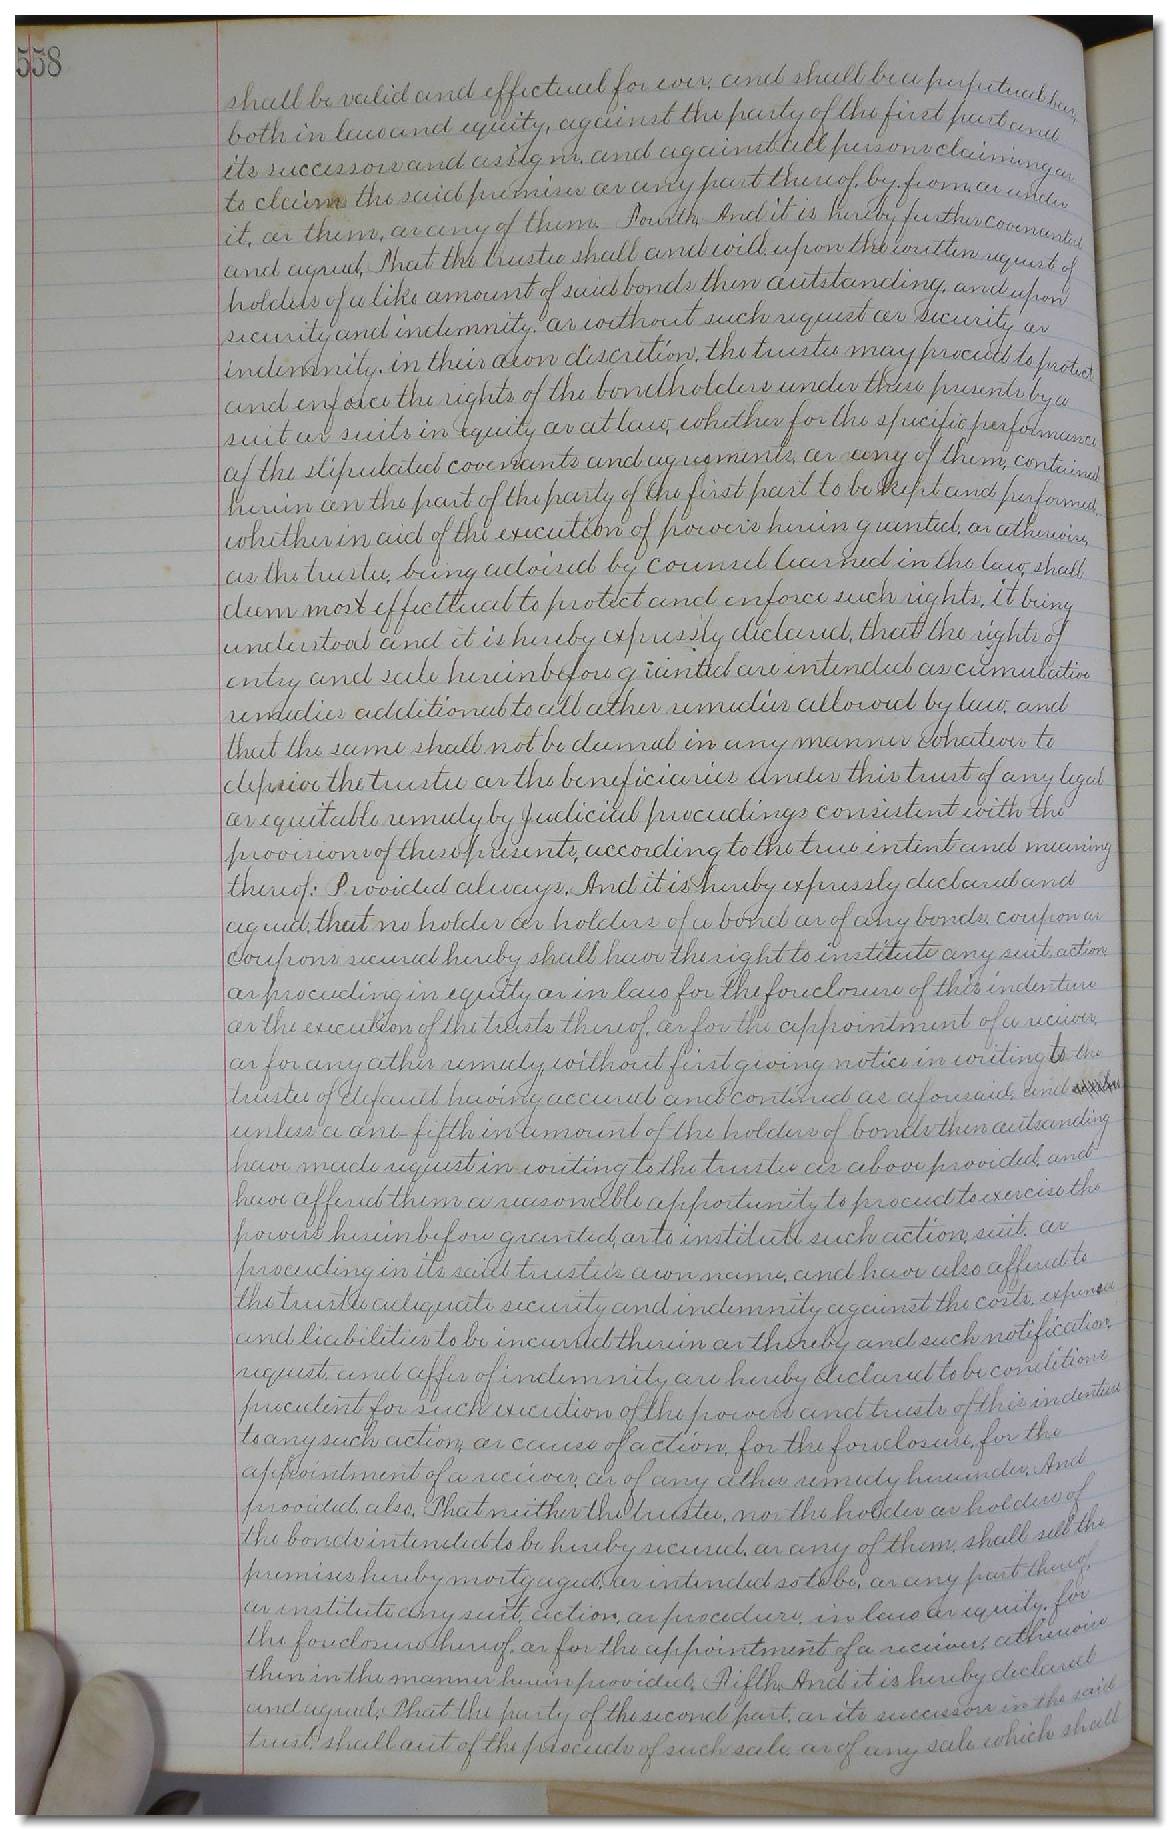 558
shall be valid and effectual for ever, and shall be a perpetual bar,
both in law and equity, against the party of the first part and
its successors and assigns. and against all persons claiming or
to claim the said premises or any part thereof, by, from, or under
it, or them, or any of them. Fourth, And it is hereby further covenanted
and agreed, That the trustee shall and will, upon the written request of
holders of a like amount of said bonds then outstanding, and upon
security and indemnity. or without such request or security or
indemnity, in their own discretion, the trustee may proceed to protect
and enforce the rights of the bondholders under these presents by a
suit or suits in equity or at law, whether for the specific performance
of the stipulated covenants and agreements, or any of them, contained
herein on the part of the party of the first part to be kept and performed,
whether in aid of the execution of powers herein granted, or otherwise,
as the trustee, being advised by counsel learned in the law, shall
deem most effecttual to protect and enforce such rights, it being
understood and it is hereby expressly declared, that the rights of
entry and sale hereinbefore granted are intended as cumulative
remedies additional to all other remedies allowed by law, and
that the same shall not be deemed in any manner whatever to
deprive the trustee or the beneficiaries under this trust of any legal
or equitable remedy by judicial proceedings consistent with the
provisions of these presents, according to the true intent and meaning
thereof: Provided always, And it is hereby expressly declared and
agreed, that no holder or holders of a bond or of any bonds, coupon or
coupons secured hereby shall have the right to institute any suit, action
or proceeding in equity or in law for the foreclosure of this indenture
or the execution of the trusts thereof, or for the appointment of a receiver,
or for any other remedy without first giving notice in writing to the
trustee of default having accured and contined as aforesaid, and
unless a one-fifth in amount of the holders of bonds then outsanding
have made request in writing to the trustee as above provided, and
have offered them a reasonable opportunity to proceed to exercise the
powers hereinbefore granted, or to institute such action, suit, or
proceeding in its said trustee's own name, and have also offered to
the trustee adequate security and indemnity against the costs, expenses
and liabilities to be incurred therein or thereby and such notification,
request, and offer of indemnity are hereby declared to be conditions
precedent for such execution of the powers and trusts of this indenture
to any such action, or cause of action, for the foreclosure, for the
appointment of a receiver, or of any other remedy hereunder. And
provided also, That neither the trustee, nor the holder or holders of
the bonds intended to be hereby secured, or any of them, shall sell the
premises hereby mortgaged, or intended so to be, or any part thereof,
or institute any suit, action, or procedure, in law or equity, for
the foreclosure hereof, or for the appointment of a receiver, otherwise
then in the manner herein provided. Fifth, And it is hereby declared
and agreed; That the party of the second part, or its successor in the said
trust, shall out of the proceeds of such sale, or of any sale which shall